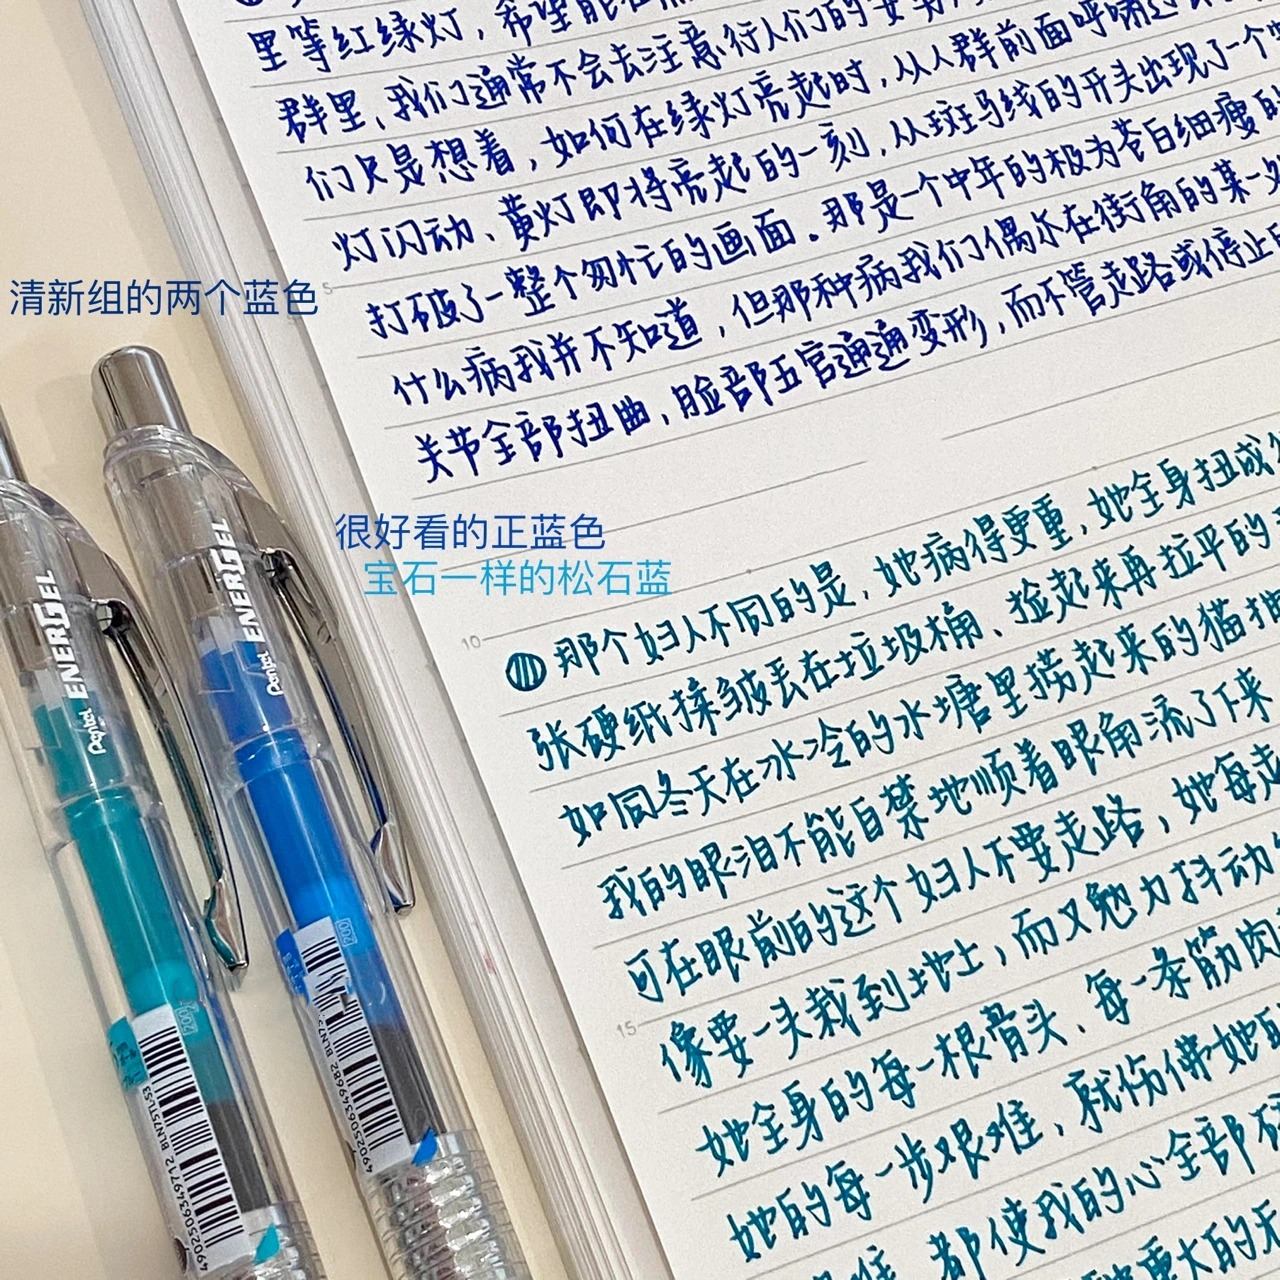 里等红绿灯，希望能在
群里，我们通常不会去注意行人们的
们只是想着，如何在绿灯亮起时，从人群前面呼啸过
灯闪动、黄灯即将亮起的一刻，从斑马线的开头出现了一个
打破了一整个匆忙的画面。那是一个中年的极为苍白细瘦的
什么病我并不知道，但那种病我们偶尔在街角的某一处
关节全部扭曲，脸部五官通通变形，而不管走路或停止
清新组的两个蓝色
很好看的正蓝色
宝石一样的松石蓝
5
10
15
那个妇人不同的是，她病得更重，她全身扭成
张硬纸揉皱丢在垃圾桶、捡起来再拉平的
如同冬天在冰冷的水塘里捞起来的猫
我的眼泪不能自禁地顺着眼角流了下来
可在眼前的这个妇人不要走路，她每走
像要一头栽到地上，而又勉力抖动
她全身的每一根骨头、每一条筋肉
她的每一步艰难，就仿佛她
难，都使我的心全部
重大的无
Pentel ENERGEL
Pentel ENERGEL
4902506349712 BLN75TL-S3
4902506349682 BLN75